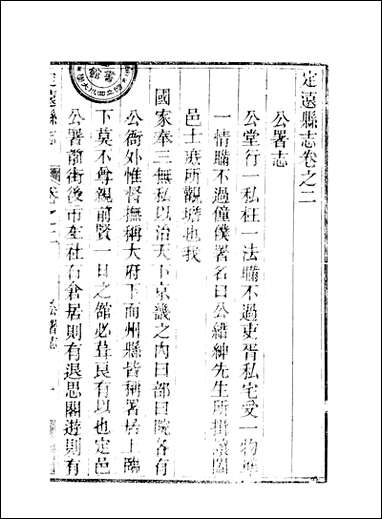 定遠縣志卷之二
公署志
公堂行一私枉一法瞞不過吏胥私宅受一物
一情瞞不過僮僕署名曰公縉紳先生所
邑士庶所觀瞻也我
國家奉三無私以治天下京議之內曰部曰院各有
公衙外惟督撫稱大府下而州縣皆稱署居上臨
下莫不尊親前賢一日之館必葺良有以也定邑
公署前街後市左社右倉居則有退思閣遊則有
定遠縣志 卷之二 公署志 一